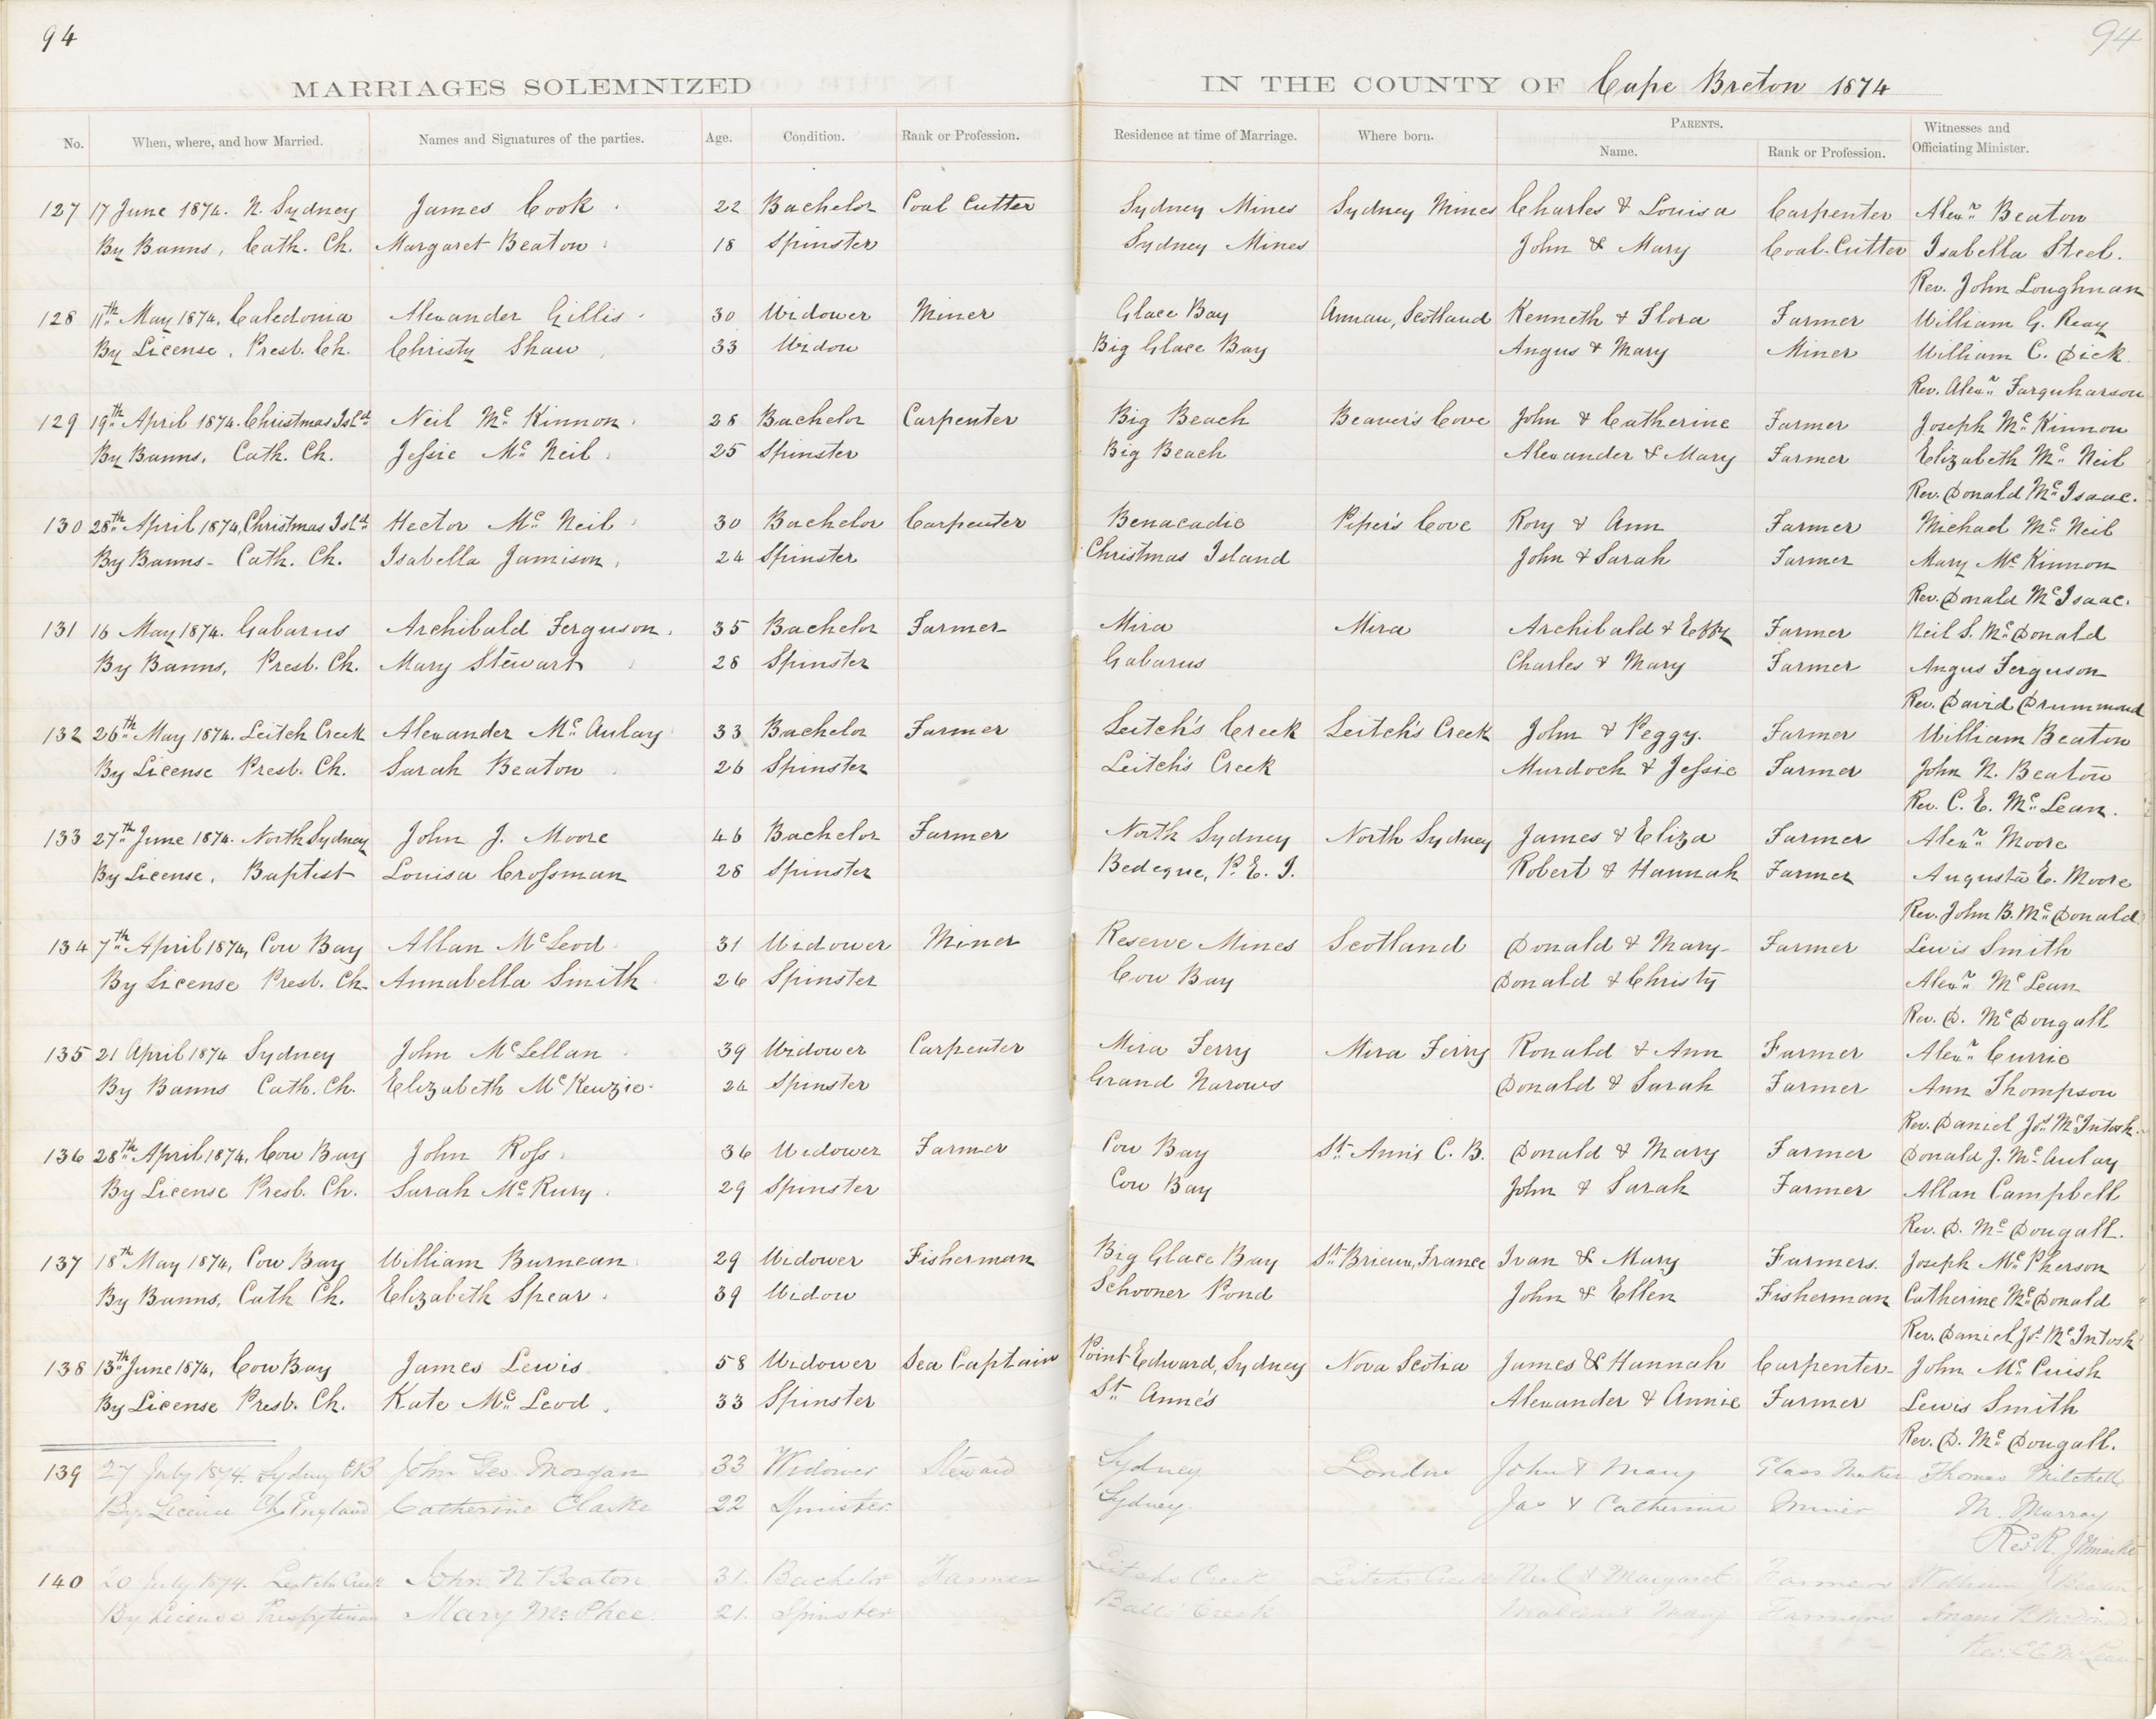 94
94
MARRIAGES SOLEMNIZED IN THE COUNTY OF Cape Breton 1874
No. When, where, and how Married. Names and Signatures of the parties. Age. Condition. Rank or Profession. Residence at time of Marriage. Where born. PARENTS. Name. Rank or Profession. Witnesses and Officiating Minister.
127 17 June 1874. N. Sydney James Cook 22 Bachelor Coal Cutter Sydney Mines Sydney Mines Charles & Louisa Carpenter Alexr. Beaton
By Banns, Cath. Ch. Margaret Beaton 18 Spinster Sydney Mines John & Mary Coal Cutter Isabella Steel.
Rev. John Loughnan
128 11th May 1874, Caledonia Alexander Gillis 30 Widower Miner Glace Bay Annan, Scotland Kenneth & Flora Farmer William G. Reay
By License, Presb. Ch. Christy Shaw 33 Widow Big Glace Bay Angus & Mary Miner William C. Dick
Rev. Alexr. Farquharson
129 19th April 1874. Christmas Isld. Neil Mc Kinnon 28 Bachelor Carpenter Big Beach Beaver's Cove John & Catherine Farmer Joseph Mc Kinnon
By Banns, Cath. Ch. Jessie Mc Neil 25 Spinster Big Beach Alexander & Mary Farmer Elizabeth Mc Neil
Rev. Donald McIsaac.
130 28th April 1874, Christmas Isld. Hector Mc Neil 30 Bachelor Carpenter Benacadie Piper's Cove Rory & Ann Farmer Michael Mc Neil
By Banns - Cath. Ch. Isabella Jamison, 24 Spinster Christmas Island John & Sarah Farmer Mary Mc Kinnon
Rev. Donald McIsaac.
131 16 May 1874. Gabarus Archibald Ferguson. 35 Bachelor Farmer Mira Mira Archibald & Effy Farmer Neil S. McDonald
By Banns, Presb. Ch. Mary Stewart 28 Spinster Gabarus Charles & Mary Farmer Angus Ferguson
Rev. David Drummond
132 26th May 1874. Leitch Creek Alexander Mc Aulay 33 Bachelor Farmer Leitch's Creek Leitch's Creek John & Peggy. Farmer William Beaton
By License Presb. Ch. Sarah Beaton 26 Spinster Leitch's Creek Murdoch & Jessie Farmer John N. Beaton
Rev. C. E. Mc Lean.
133 27th June 1874. North Sydney John J. Moore 46 Bachelor Farmer North Sydney North Sydney James & Eliza Farmer Alexr. Moore
By License, Baptist Louisa Crossman 28 Spinster Bedeque, P. E. I. Robert & Hannah Farmer Augusta E. Moore
Rev. John B. McDonald
134 7th April 1874, Cow Bay Allan McLeod 31 Widower Miner Reserve Mines Scotland Donald & Mary Farmer Lewis Smith
By License Presb. Ch. Annabella Smith 26 Spinster Cow Bay Donald & Christy Alexr. McLean
Rev. D. McDougall
135 21 April 1874 Sydney John McLellan 39 Widower Carpenter Mira Ferry Mira Ferry Ronald & Ann Farmer Alexr. Currie
By Banns Cath. Ch. Elizabeth McKenzie. 24 Spinster Grand Narows Donald & Sarah Farmer Ann Thompson
Rev. Daniel Jos. McIntosh.
136 28th April 1874, Cow Bay John Ross. 36 Widower Farmer Cow Bay St. Ann's C. B. Donald & Mary Farmer Donald J. McAulay
By License Presb. Ch. Sarah McRury. 29 Spinster Cow Bay John & Sarah Farmer Allan Campbell
Rev. D. McDougall.
137 18th May 1874, Cow Bay William Burnean 29 Widower Fisherman Big Glace Bay St. Brieux, France Ivan & Mary Farmers. Joseph McPherson
By Banns, Cath Ch. Elizabeth Spear. 39 Widow Schooner Pond John & Ellen Fisherman Catherine McDonald
Rev. Daniel Jos. McIntosh
138 13th June 1874, Cow Bay James Lewis 58 Widower Sea Captain Point Edward, Sydney Nova Scotia James & Hannah Carpenter John McCuish
By License Presb. Ch. Kate McLeod. 33 Spinster St. Anne's Alexander & Annie Farmer Lewis Smith
Rev. D. McDougall.
139 27 July 1874. Sydney CB John Geo. Morgan 33 Widower Steward Sydney London John & Mary Glass Maker Thomas Mitchell
By License Ch England Catherine Clarke 22 Spinster Sydney. Jas & Catherine Miner M. Murray
140 20 July 1874. Leitchs Creek John N. Beaton 31. Bachelor Farmer Leitchs Creek Leitchs Creek Neil & Margaret Farmers
By License Presbyterian Mary McPhee 21. Spinster Balls Creek Mary Farmers Angus
Rev. C. E. McLean